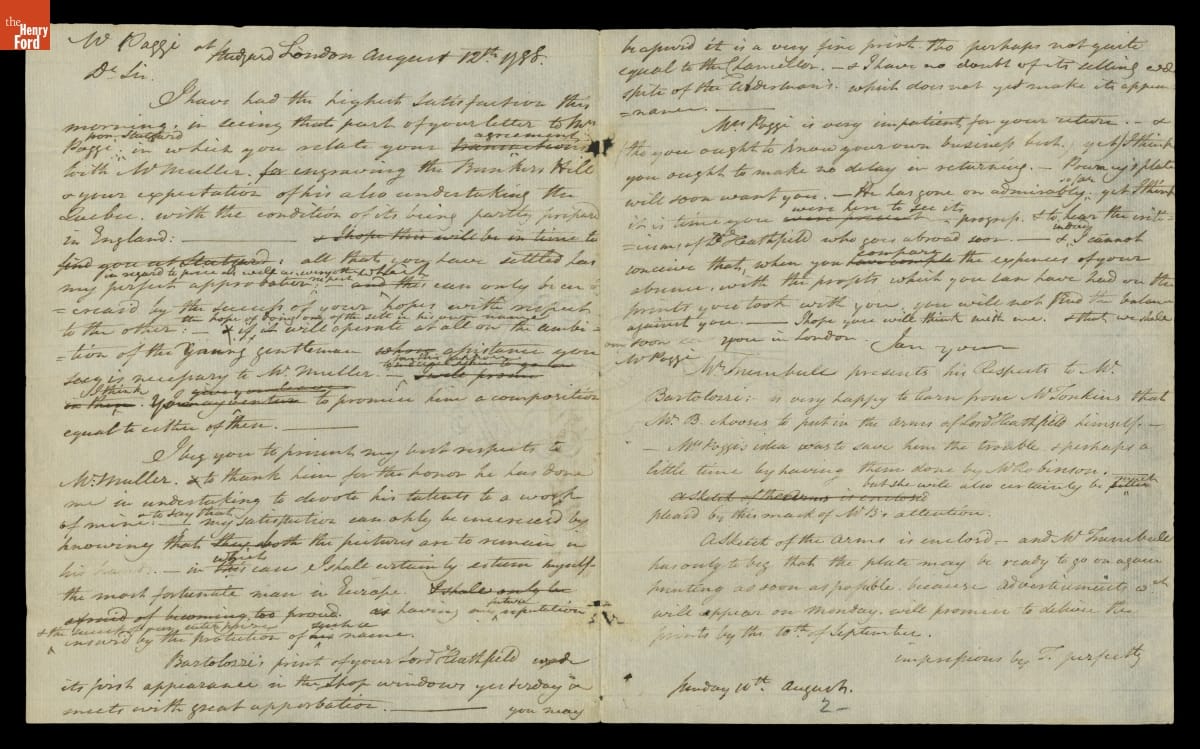 the Henry Ford
Mr Poggi at Studgard London August 12th 1788.
Dr Sir.
I have had the highest satisfaction this
morning, in seeing that part of your letter to Mrs
from Statgard agreement
Poggi in which you relate your transactions
with Mr Muller. for engraving the Bunkers Hill
& your expectation of his also undertaking the
Quebec. with the condition of its being partly prepared
in England: & I hope this will be in time to
find you at Statgard: all that you have settled has
in regard to price as well as everything
my perfect approbation: and this can only be en=
=creased by the success of your hopes with respect
the hope of being one of the sett in his own name
to the other: if it will operate at all on the ambi=
=tion of the young gentleman whose assistance you
say is necessary to Mr Muller.
I think give you leave
You may venture to promise him a composition
equal to either of them.
I beg you to present my best respects to
Mr Muller. & to thank him for the honor he has done
me in undertaking to devote his talents to a work
of mine. to say that my satisfaction can only be increased by
knowing that they both the pictures are to remain in
his hands. in which this case I shall certainly esteem myself
the most fortunate man in Europe. & shall only be
afraid of becoming too proud. as having my future reputation
& the success of my enterprise such a
insured by the protection of his name.
Bartolozzi's print of your Lord Heathfield made
its first appearance in the shop windows yesterday &
meets with great approbation. you may
be assured it is a very fine print tho perhaps not quite
equal to the Chancellor. & I have no doubt of its selling
spite of the Alderman's. which does not yet make its appear=
=nance.
Mrs Poggi is very impatient for your return. &
(tho you ought to know your own business best) yet I think
you ought to make no delay in returning. Burney's plate
so far
will soon want you. He has gone on admirably. yet I think
were here to see its
it is time you were present progress. & to hear the crit=
=icisms of Ld Heathfield who goes abroad soon. & I cannot
compare
conceive that, when you have compared the expences of your
absence, with the profits which you can have had on the
prints you took with you, you will not find the balance
against you. I hope you will think with me. & that we shall
soon you in London. I am your
Mr Poggi
Mr Trumbull presents his Respects to Mr
Bartolozzi: is very happy to learn from Mr Tomkins that
Mr B. chooses to put in the arms of Lord Heathfield himself.
Mrs Poggi's idea was to save him the trouble & perhaps a
little time by having them done by Mr Robinson.
but she will also certainly be
a sketch of the arms is enclosed
pleasd by this mark of Mr B's attention.
A sketch of the arms is enclosd. and Mr Trumbull
has only to beg that the plate may be ready to go on again
printing as soon as possible. because advertisements wch
will appear on Monday, will promise to deliver the
prints by the 10th of September.
impressions by T. perfectly
Sunday 10th August.
2